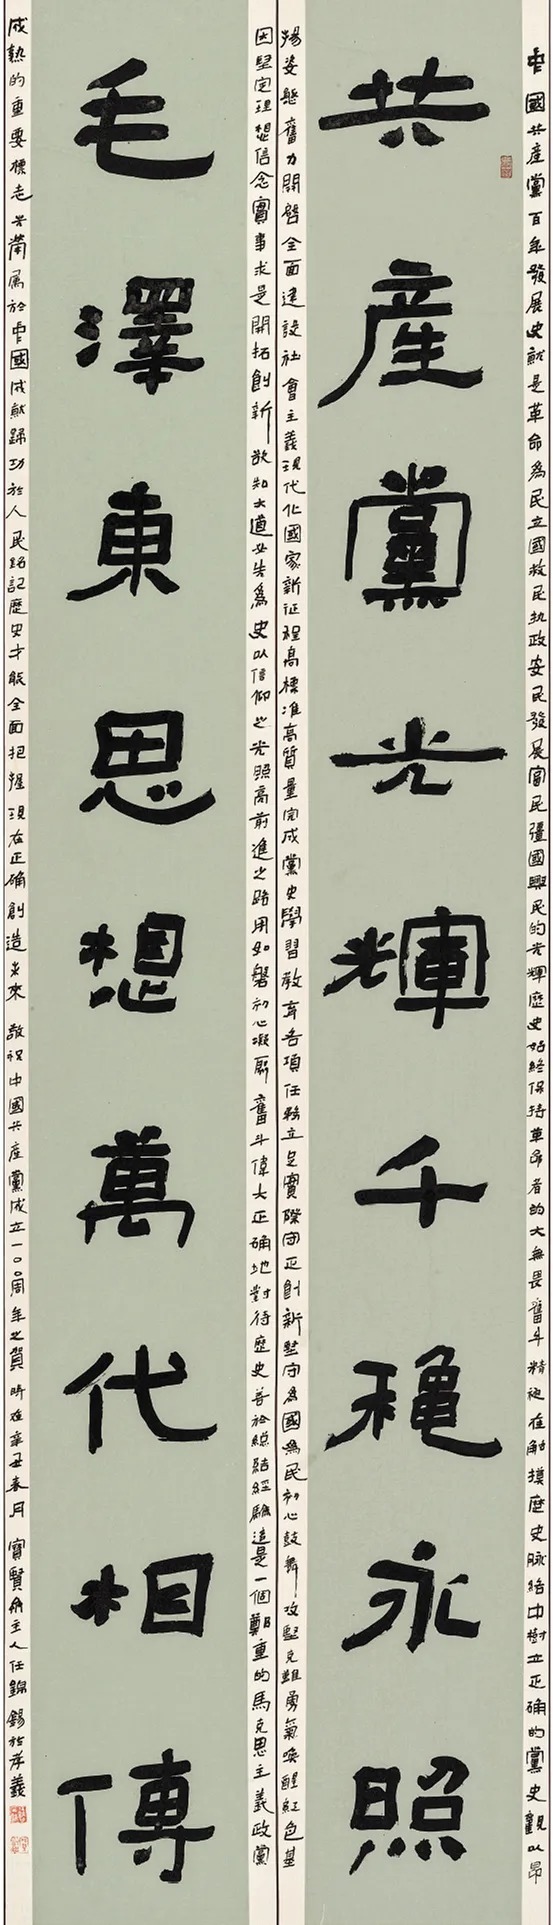 中國共產黨百年發展史就是革命為民立國救民執政安民發展富民彊國興民的光輝歷史始終保持革命者的大無畏奮斗精神在触摸歷史脉络中樹立正确的黨史觀以昂
共產黨光輝千穐永照
揚姿態奮力開啟全面建設社會主義現代化國家新征程高標准高質量完成黨史學習教育各項任務立足實際守正創新堅守為國為民初心鼓舞攻堅克難勇氣喚醒紅色基
因堅定理想信念實事求是開拓創新欲知大道必先為史以信仰之光照亮前進之路用如磐初心凝聚奮斗偉大正确地對待歷史善於總結經驗這是一個鄭重的馬克思主義政黨
毛澤東思想萬代相傳
成熟的重要標志光荣屬於中國成就歸功於人民铭記歷史才能全面把握現在正确創造未來敬祝中國共產黨成立一〇〇周年之賀時在辛丑春月寶賢齋主人任錦錫於孝義